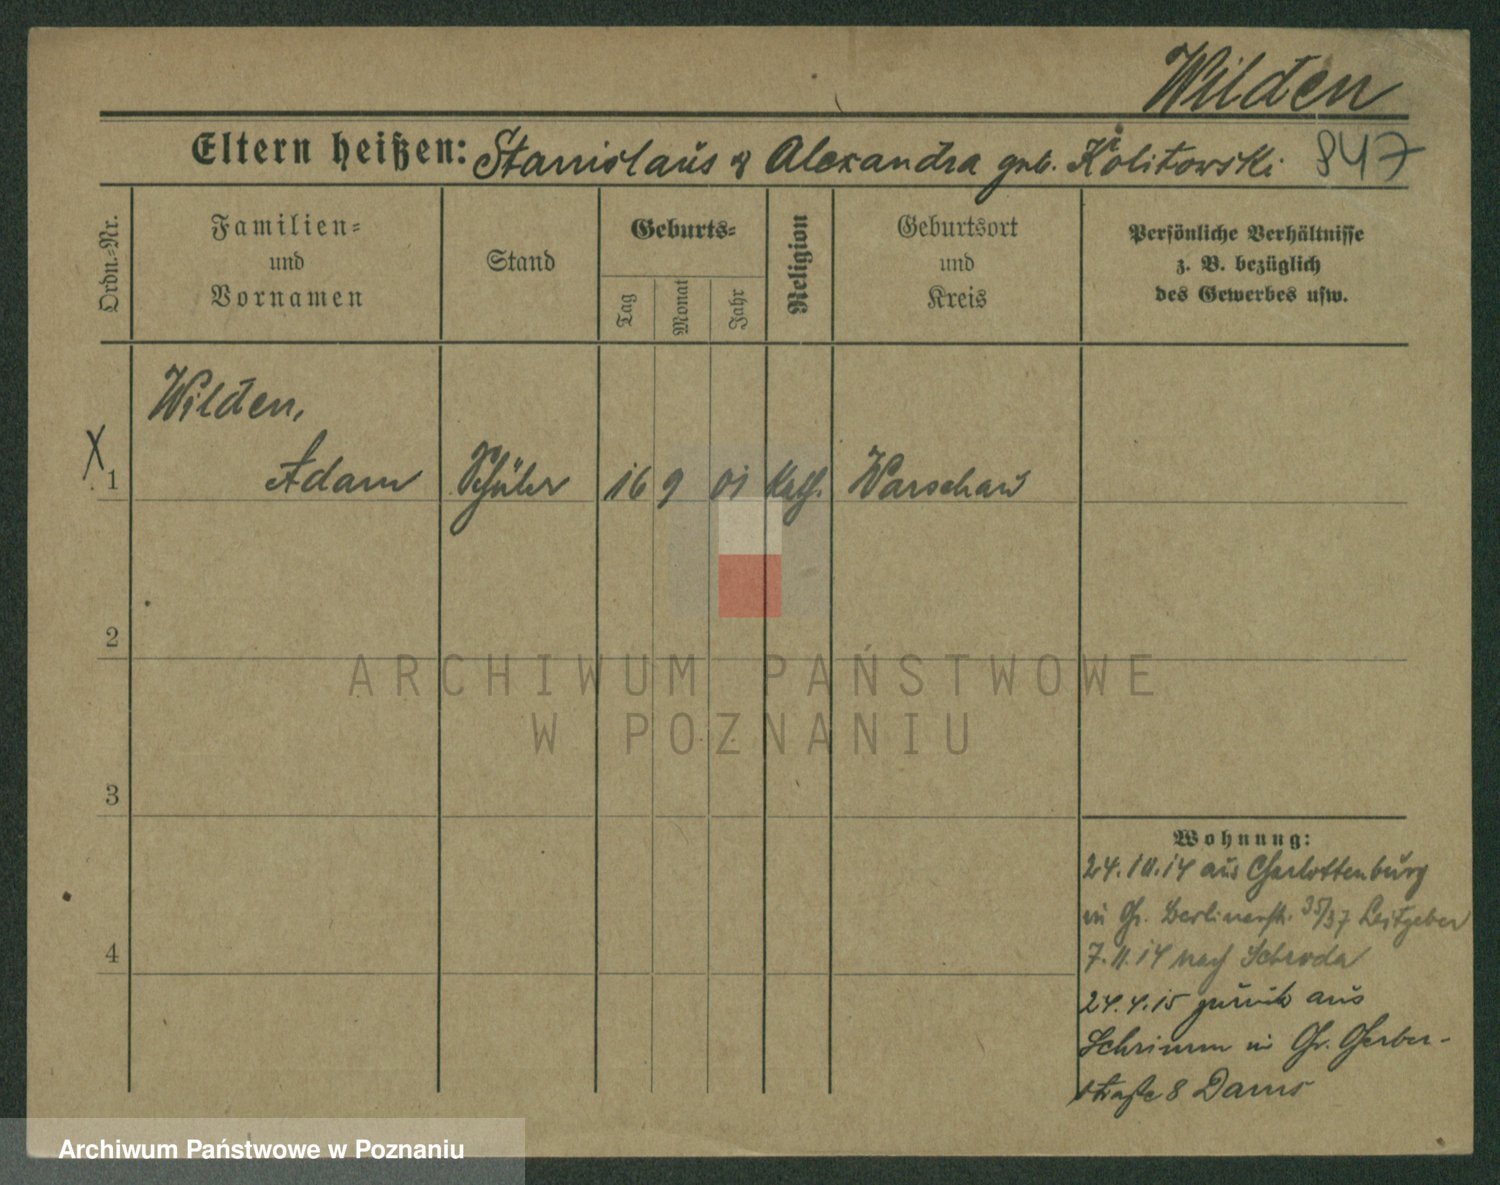 Wilden
Eltern heißen: Stanislaus & Alexandra geb. Kolitowski 847
Ordn.-Nr.
Familien-
und
Vornamen
Stand
Geburts-
Tag
Monat
Jahr
Religion
Geburtsort
und
Kreis
Persönliche Verhältnisse
z. B. bezüglich
des Gewerbes usw.
Wilden,
X 1 Adam Schüler 16 9 01 Kath. Warschau
2
ARCHIWUM PAŃSTWOWE
W POZNANIU
3
Wohnung:
24.10.14 aus Charlottenburg
in Gr. Berlinerstr. 35/37 Leitgeber
4
7.11.14 nach Schroda
24.4.15 zurück aus
Schrimm in Gr. Gerber-
straße 8 Dams
Archiwum Państwowe w Poznaniu